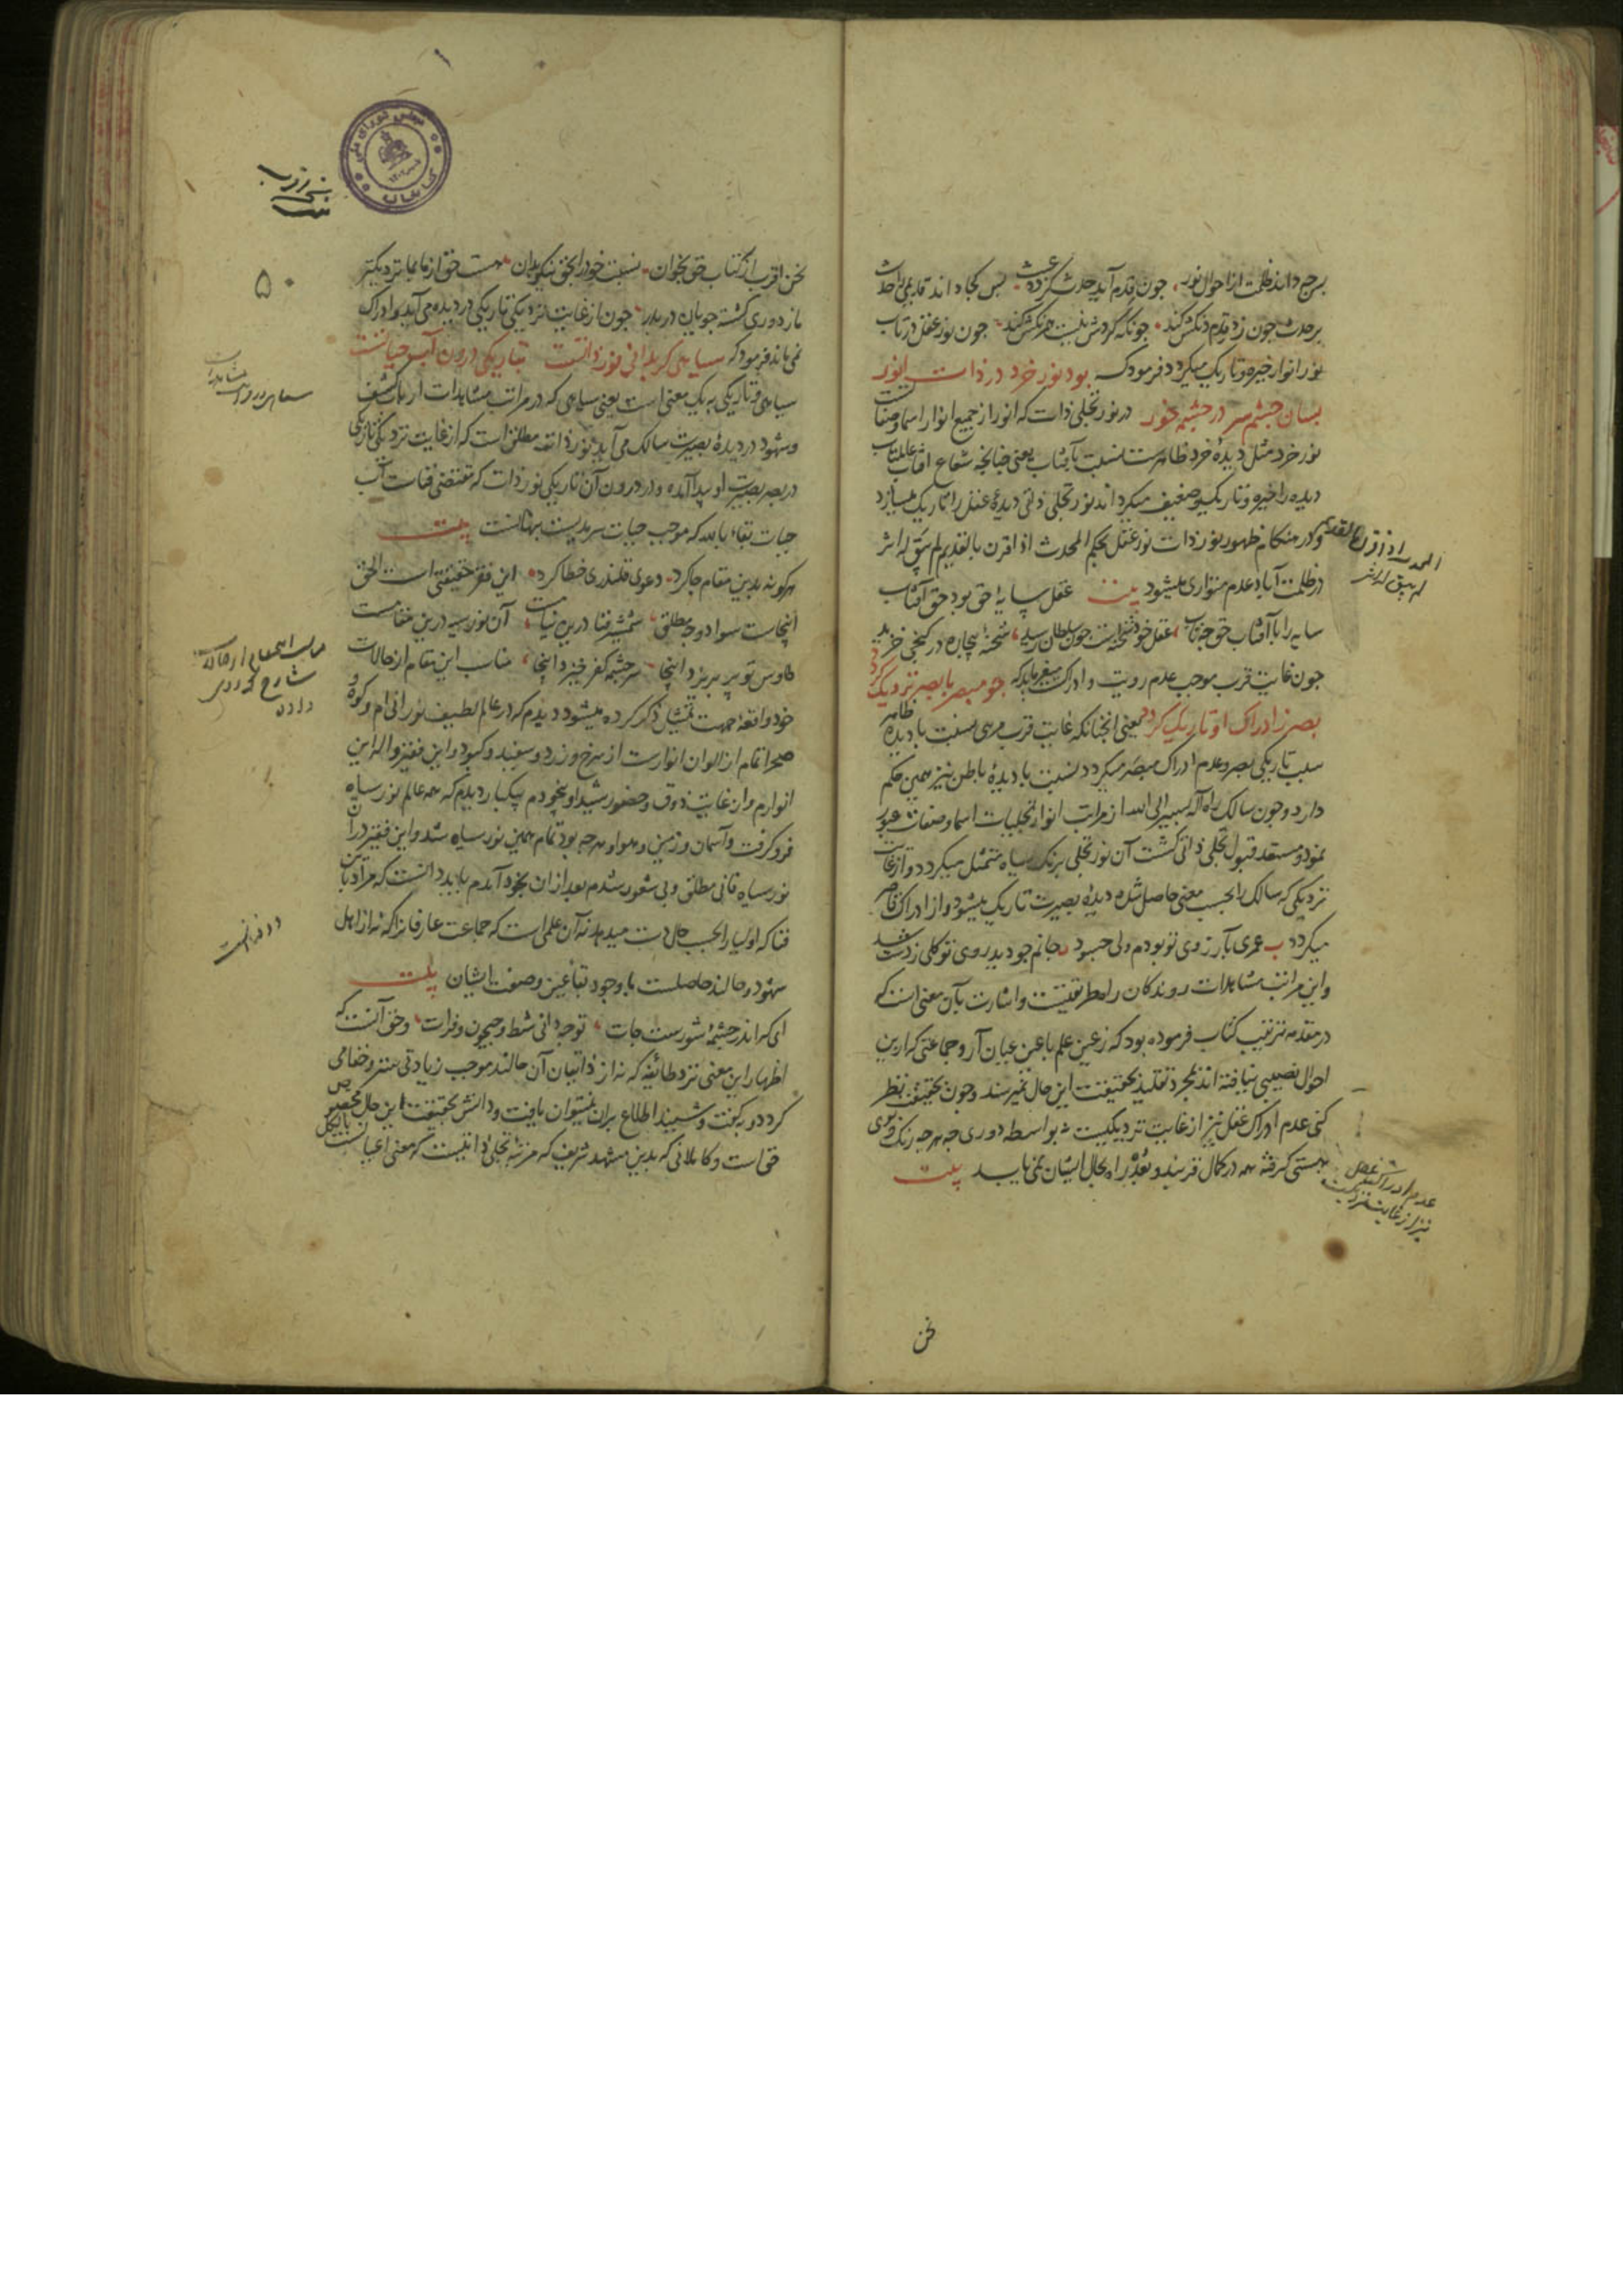 پس چه داند ظلمت از احوال نور چون قدم آید حدث گردد عبث پس کجا داند قدیمی را حدث
بر حدث چون زد قدم دنگش کند چونکه کردش نیست همرنگش کند چون نور عقل در تاب
نور انوار خیره و تاریک میگردد فرمود که بود نور خرد در ذات انور
بسان چشم سر در چشمه خور در نور تجلی ذات که انور از جمیع انوار اسما و صفاتست
نور خرد مثل دیدۀ خرد ظاهرست نسبت بآفتاب یعنی چنانچه شعاع آفتاب عالمتاب
دیده را خیره و تاریک و ضعیف میگرداند نور تجلی ذاتی دیدۀ عقل را تاریک میسازد
و در هنگام ظهور نور ذات نور عقل بحکم المحدث اذا اقرن بالقدیم لم یبق له اثر
در ظلمت آباد عدم متواری میشود بیت عقل سایۀ حق بود حق آفتاب
سایه را با آفتاب حق چه تاب عقل خود شحنه است چون سلطان رسید شحنۀ بیچاره در کنجی خزید
چون غایت قرب موجب عدم رویت و ادراکست میفرماید که چو مبصر با بصر نزدیک گردد
بصر ز ادراک او تاریک گردد یعنی آنچنانکه غایت قرب مرئی نسبت با دیده ظاهر
سبب تاریکی بصر و عدم ادراک مبصر میگردد نسبت با دیدۀ باطن نیز همین حکم
دارد و چون سالک راه اله بسیر الی الله از مراتب انوار تجلیات اسما و صفات عبور
نمود و مستعد قبول تجلی ذاتی گشت آن نور تجلی برنگ سیاه متمثل میگردد و از غایت
نزدیکی که سالک را بحسب معنی حاصل شده دیدۀ بصیرت تاریک میشود و از ادراک قاصر
میگردد ب عمری بآرزوی تو بودم ولی چسود جانم چو دید روی تو کلی ز دست شد
و این مراتب مشاهدات روندگان راه طریقتست و اشارت بآن معنی است که
در مقدمه ترتیب کتاب فرموده بود که ز عین علم با عین عیان آر و جماعتی که ازین
احوال نصیبی نیافته اند بمجرد تقلید بحقیقت این حال نمیرسند و چون بحقیقت نظر
کنی عدم ادراک عقل نیز از غایت نزدیکیست نه بواسطه دوری چه هر چه رنگ و بوی
هستی گرفته همه در کمال قربند و بعد را راه بحال ایشان نمی نماید بیت
المحدث اذا قرن بالقدیم
لم یبق له اثر
عدم ادراک عقل
نیز از غایت نزدیکیست
نحن
۵۰
نحن اقرب از کتاب حق بخوان نسبت خود را بحق نیکو بدان هست حق از ما بما نزدیکتر
ما ز دوری گشته جویان در بدر چون از غایت نزدیکی تاریکی در دیده می آید و ادراک
نمی ماند فرمود که سیاهی گر بدانی نور ذاتست بتاریکی درون آب حیاتست
سیاهی و تاریکی به یک معنی است یعنی سیاهی که در مراتب مشاهدات ارباب کشف
و شهود در دیدۀ بصیرت سالک می آید نور ذات مطلق است که از غایت نزدیکی تاریکی
در بصر بصیرت او پیدا آمده و در درون آن تاریکی نور ذات که مقتضی فناست آب
حیات بقاء بالله که موجب حیات سرمدیست پنهانست بیت
هر کو نه بدین مقام جا کرد دعوی قلندری خطا کرد این فقر حقیقتی است الحق
اینجاست سواد وجه مطلق شمشیر فنا درین نیامست آن نور سیه درین مقامست
طاوس تو پر بریزد اینجا سرچشمه کفر خیزد اینجا مناسب این مقام از حالات
خود واقعۀ جهت تمثیل ذکر کرده میشود دیدم که در عالم لطیف نورانی ام و کوه و
صحرا تمام از الوان انوارست از سرخ و زرد و سفید و کبود و این فقیر واله این
انوارم و از غایت ذوق و حضور شیدا و بیخودم بیکبار دیدم که همه عالم نور سیاه
فرو گرفت و آسمان و زمین و هوا و هر چه بود تمام همین نور سیاه شد و این فقیر در آن
نور سیاه فانی مطلق و بی شعور شدم بعد از آن بخود آمدم بباید دانست که مراد باین
فنا که اولیا را بحسب حال دست میدهد نه آن علمی است که جماعت عارفان را که نه از اهل
شهود و حالند حاصلست با وجود بقاء عین و صفت ایشان بیت
ای که اندر چشمۀ شورست جات تو چه دانی شط و جیحون و فرات و حق آنست که
اظهار این معنی نزد طائفه که نه از ذائقان آن حالند موجب زیادتی ستر و خفا می
گردد و بگفت و شنید اطلاع بران نمیتوان یافت و دانش بحقیقت این حال مخصوص
حق است و کاملانی که بدین مشهد شریف که مرتبه تجلی ذاتیست که معنی
مناسب این مقام از حالات
شارح
داده